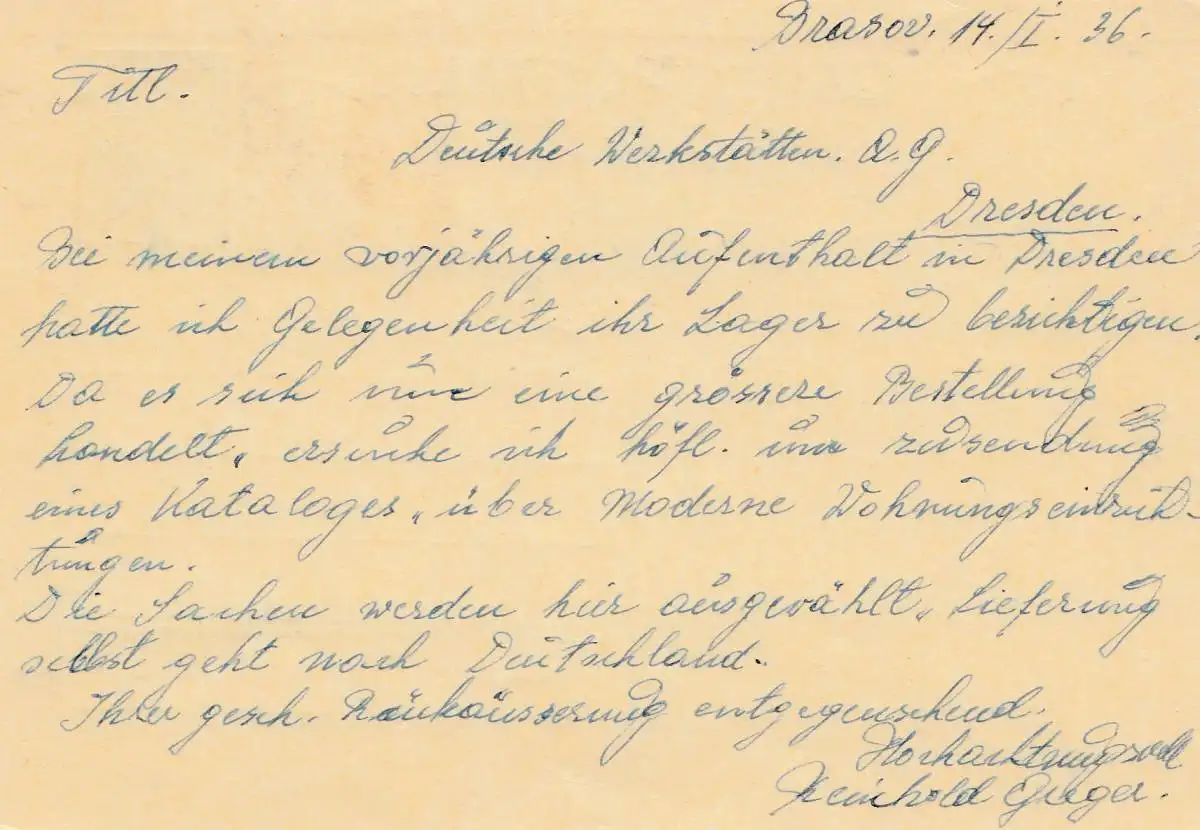 Brasov. 14./I. 36.
Titl.
Deutsche Werkstätten. A.G.
Dresden.
Bei meinem vorjährigen Aufenthalt in Dresden
hatte ich Gelegenheit ihr Lager zu besichtigen.
Da es sich um eine grössere Bestellung
handelt, ersuche ich höfl. um zusendung
eines Kataloges, über Moderne Wohnungseinrich-
tungen.
Die Sachen werden hier ausgewählt, Lieferung
selbst geht nach Deutschland.
Ihrer gesch. Rückäusserung entgegensehend.
Hochachtungsvoll
Reinhold